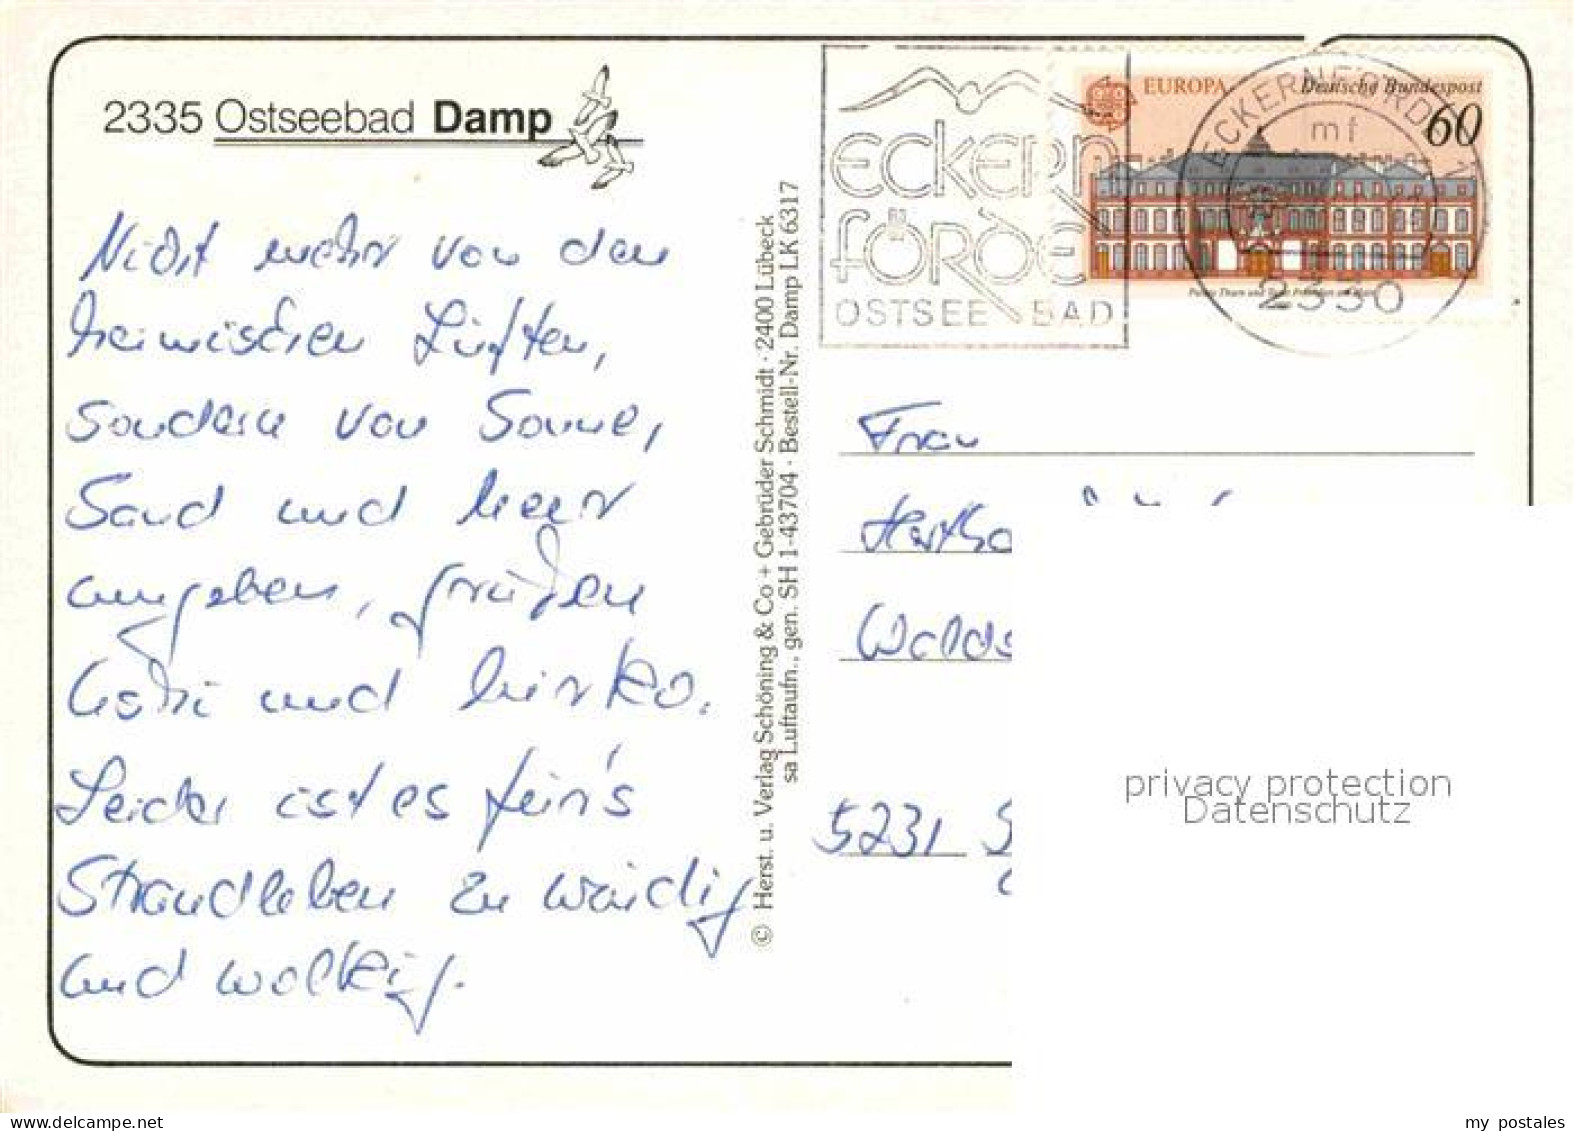 2335 Ostseebad Damp
Nicht mehr von den
heimischen Lüften,
sondern von Sonne,
Sand und Meer
umgeben, grüßen
und Mirko.
Leider ist es für's
Strandleben zu windig
und wolkig.
© Herst. u. Verlag Schöning & Co + Gebrüder Schmidt · 2400 Lübeck
sa Luftaufn., gen. SH 1-43704 · Bestell-Nr. Damp LK 6317
ECKERN
FÖRDE
OSTSEE BAD
EUROPA Deutsche Bundespost
60
ECKERNFÖRDE 1
mf
2330
Frau
Hertha
Walds
5231 S
privacy protection
Datenschutz
my postales